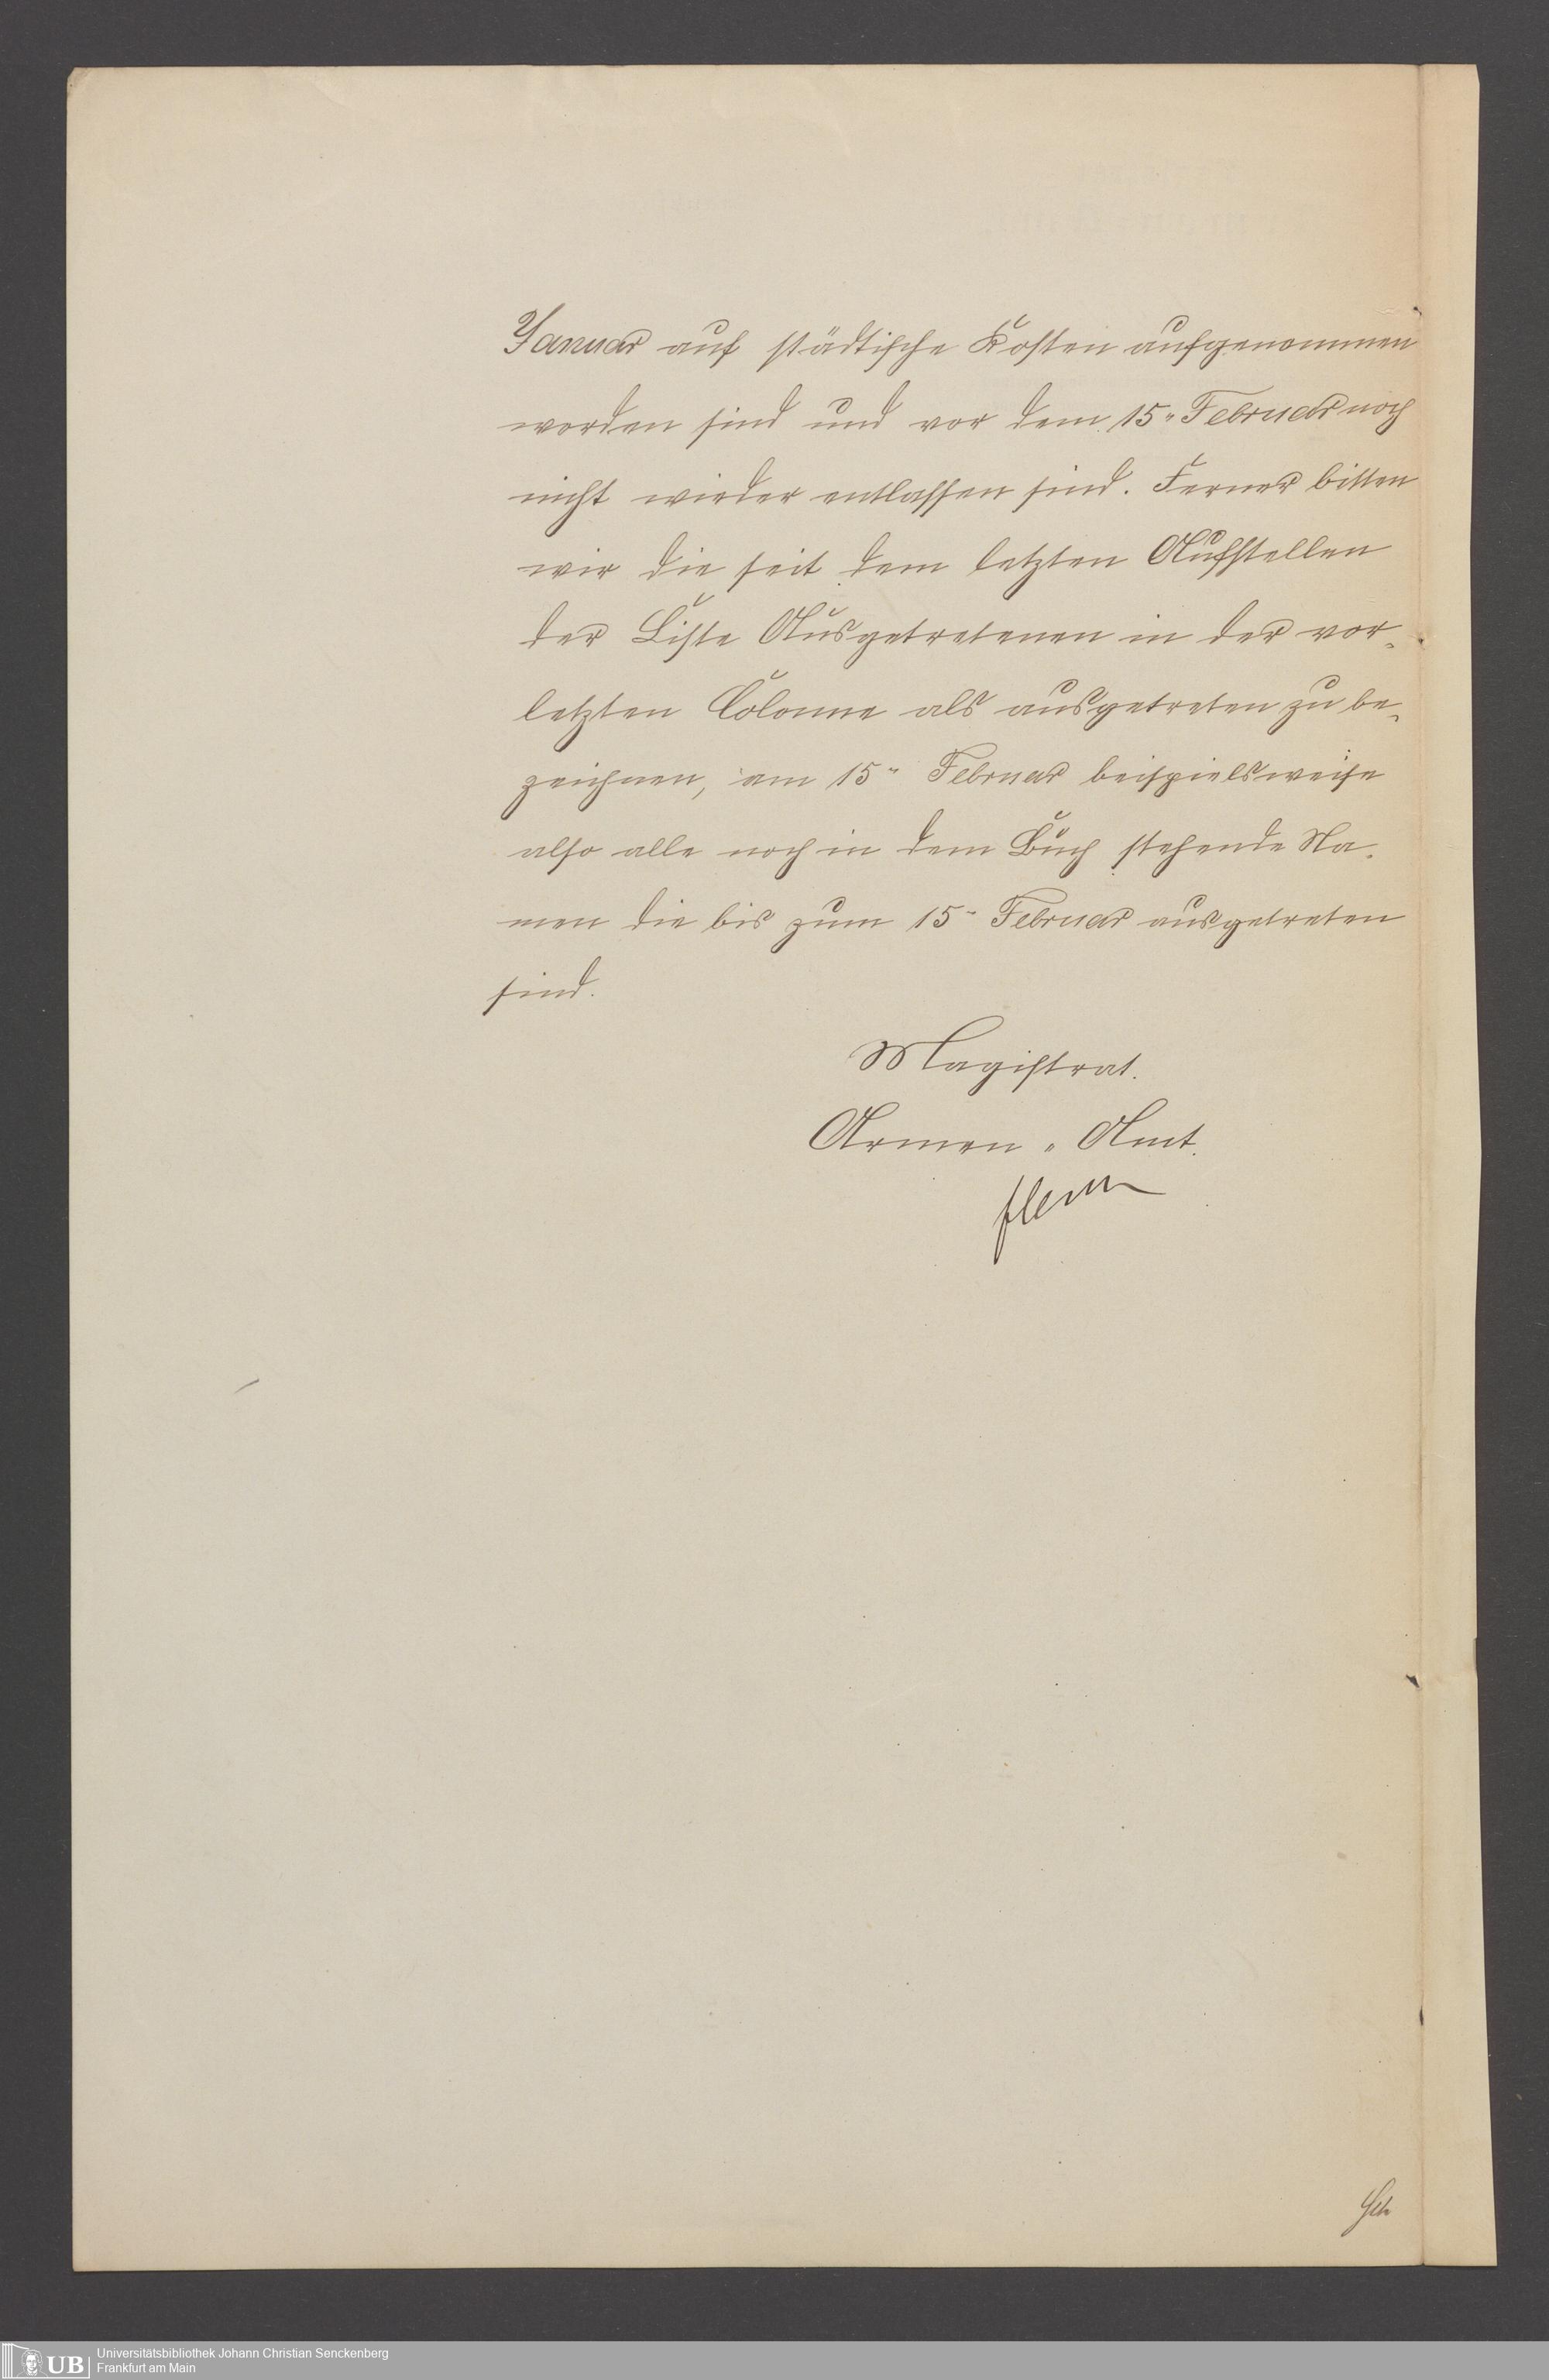 Januar auf städtische Kosten aufgenommen
worden sind und vor dem 15" Februar noch
nicht wieder entlassen sind. Ferner bitten
wir die seit dem letzten Aufstellen
der Liste Ausgetretenen in der vor-
letzten Colonne als ausgetreten zu be-
zeichnen, am 15" Februar beispielsweise
also alle noch in dem Buch stehende Na-
men die bis zum 15" Februar ausgetreten
sind.
Magistrat.
Armen-Amt.
UB
Universitätsbibliothek Johann Christian Senckenberg
Frankfurt am Main